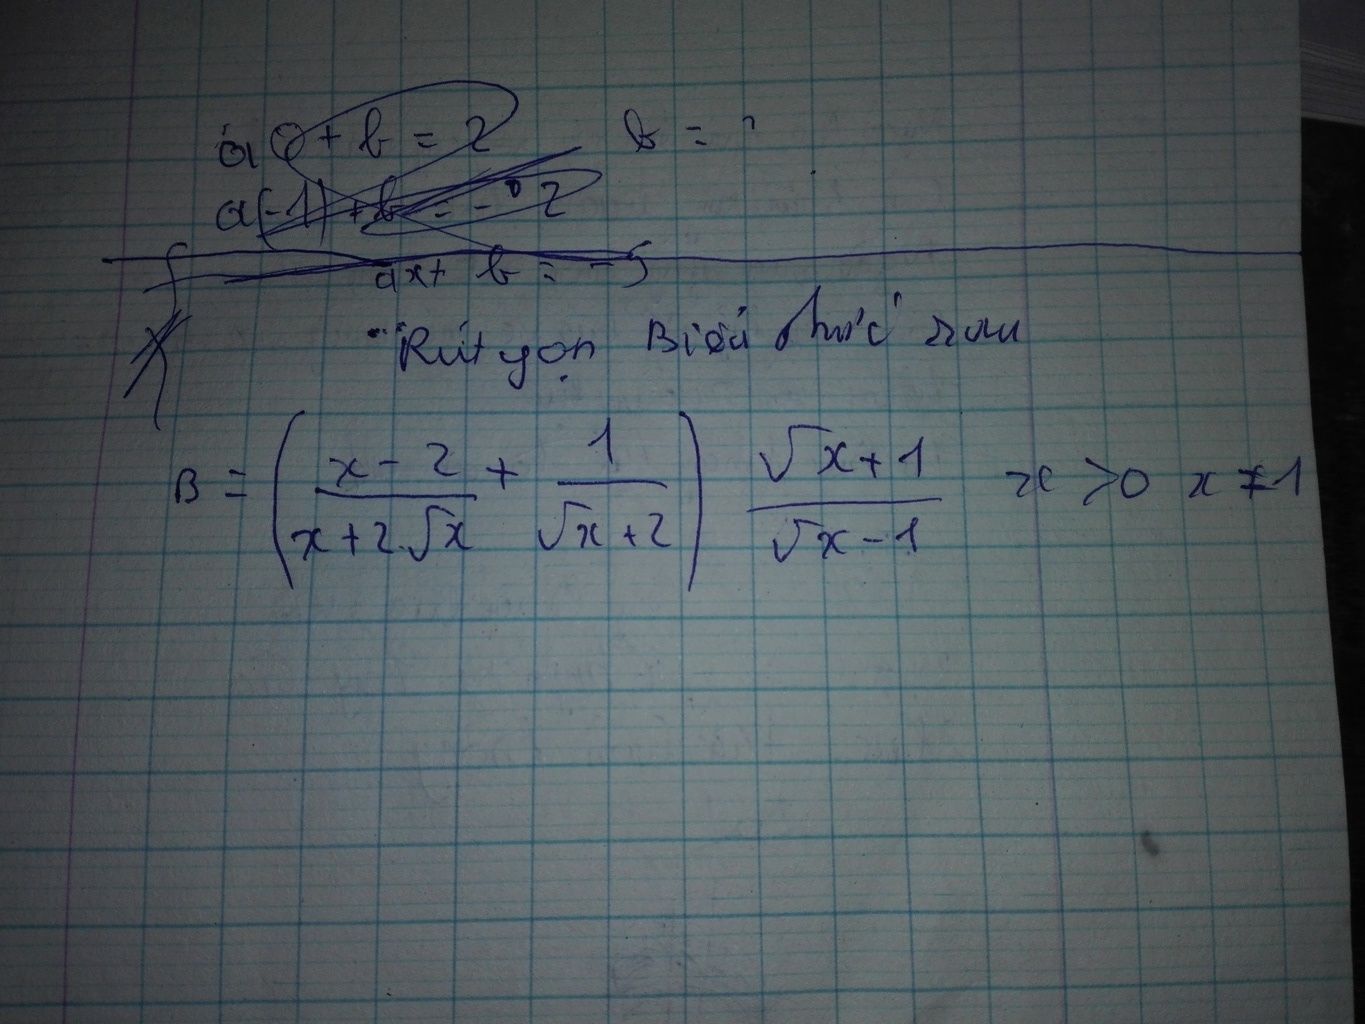 a 0 + b = 2 b = ?
a(-1) + b = - 2
ax + b = -5
Rút gọn Biểu thức sau
B = ( \frac{x - 2}{x + 2.\sqrt{x}} + \frac{1}{\sqrt{x} + 2} ) \frac{\sqrt{x} + 1}{\sqrt{x} - 1} x > 0 x ≠ 1